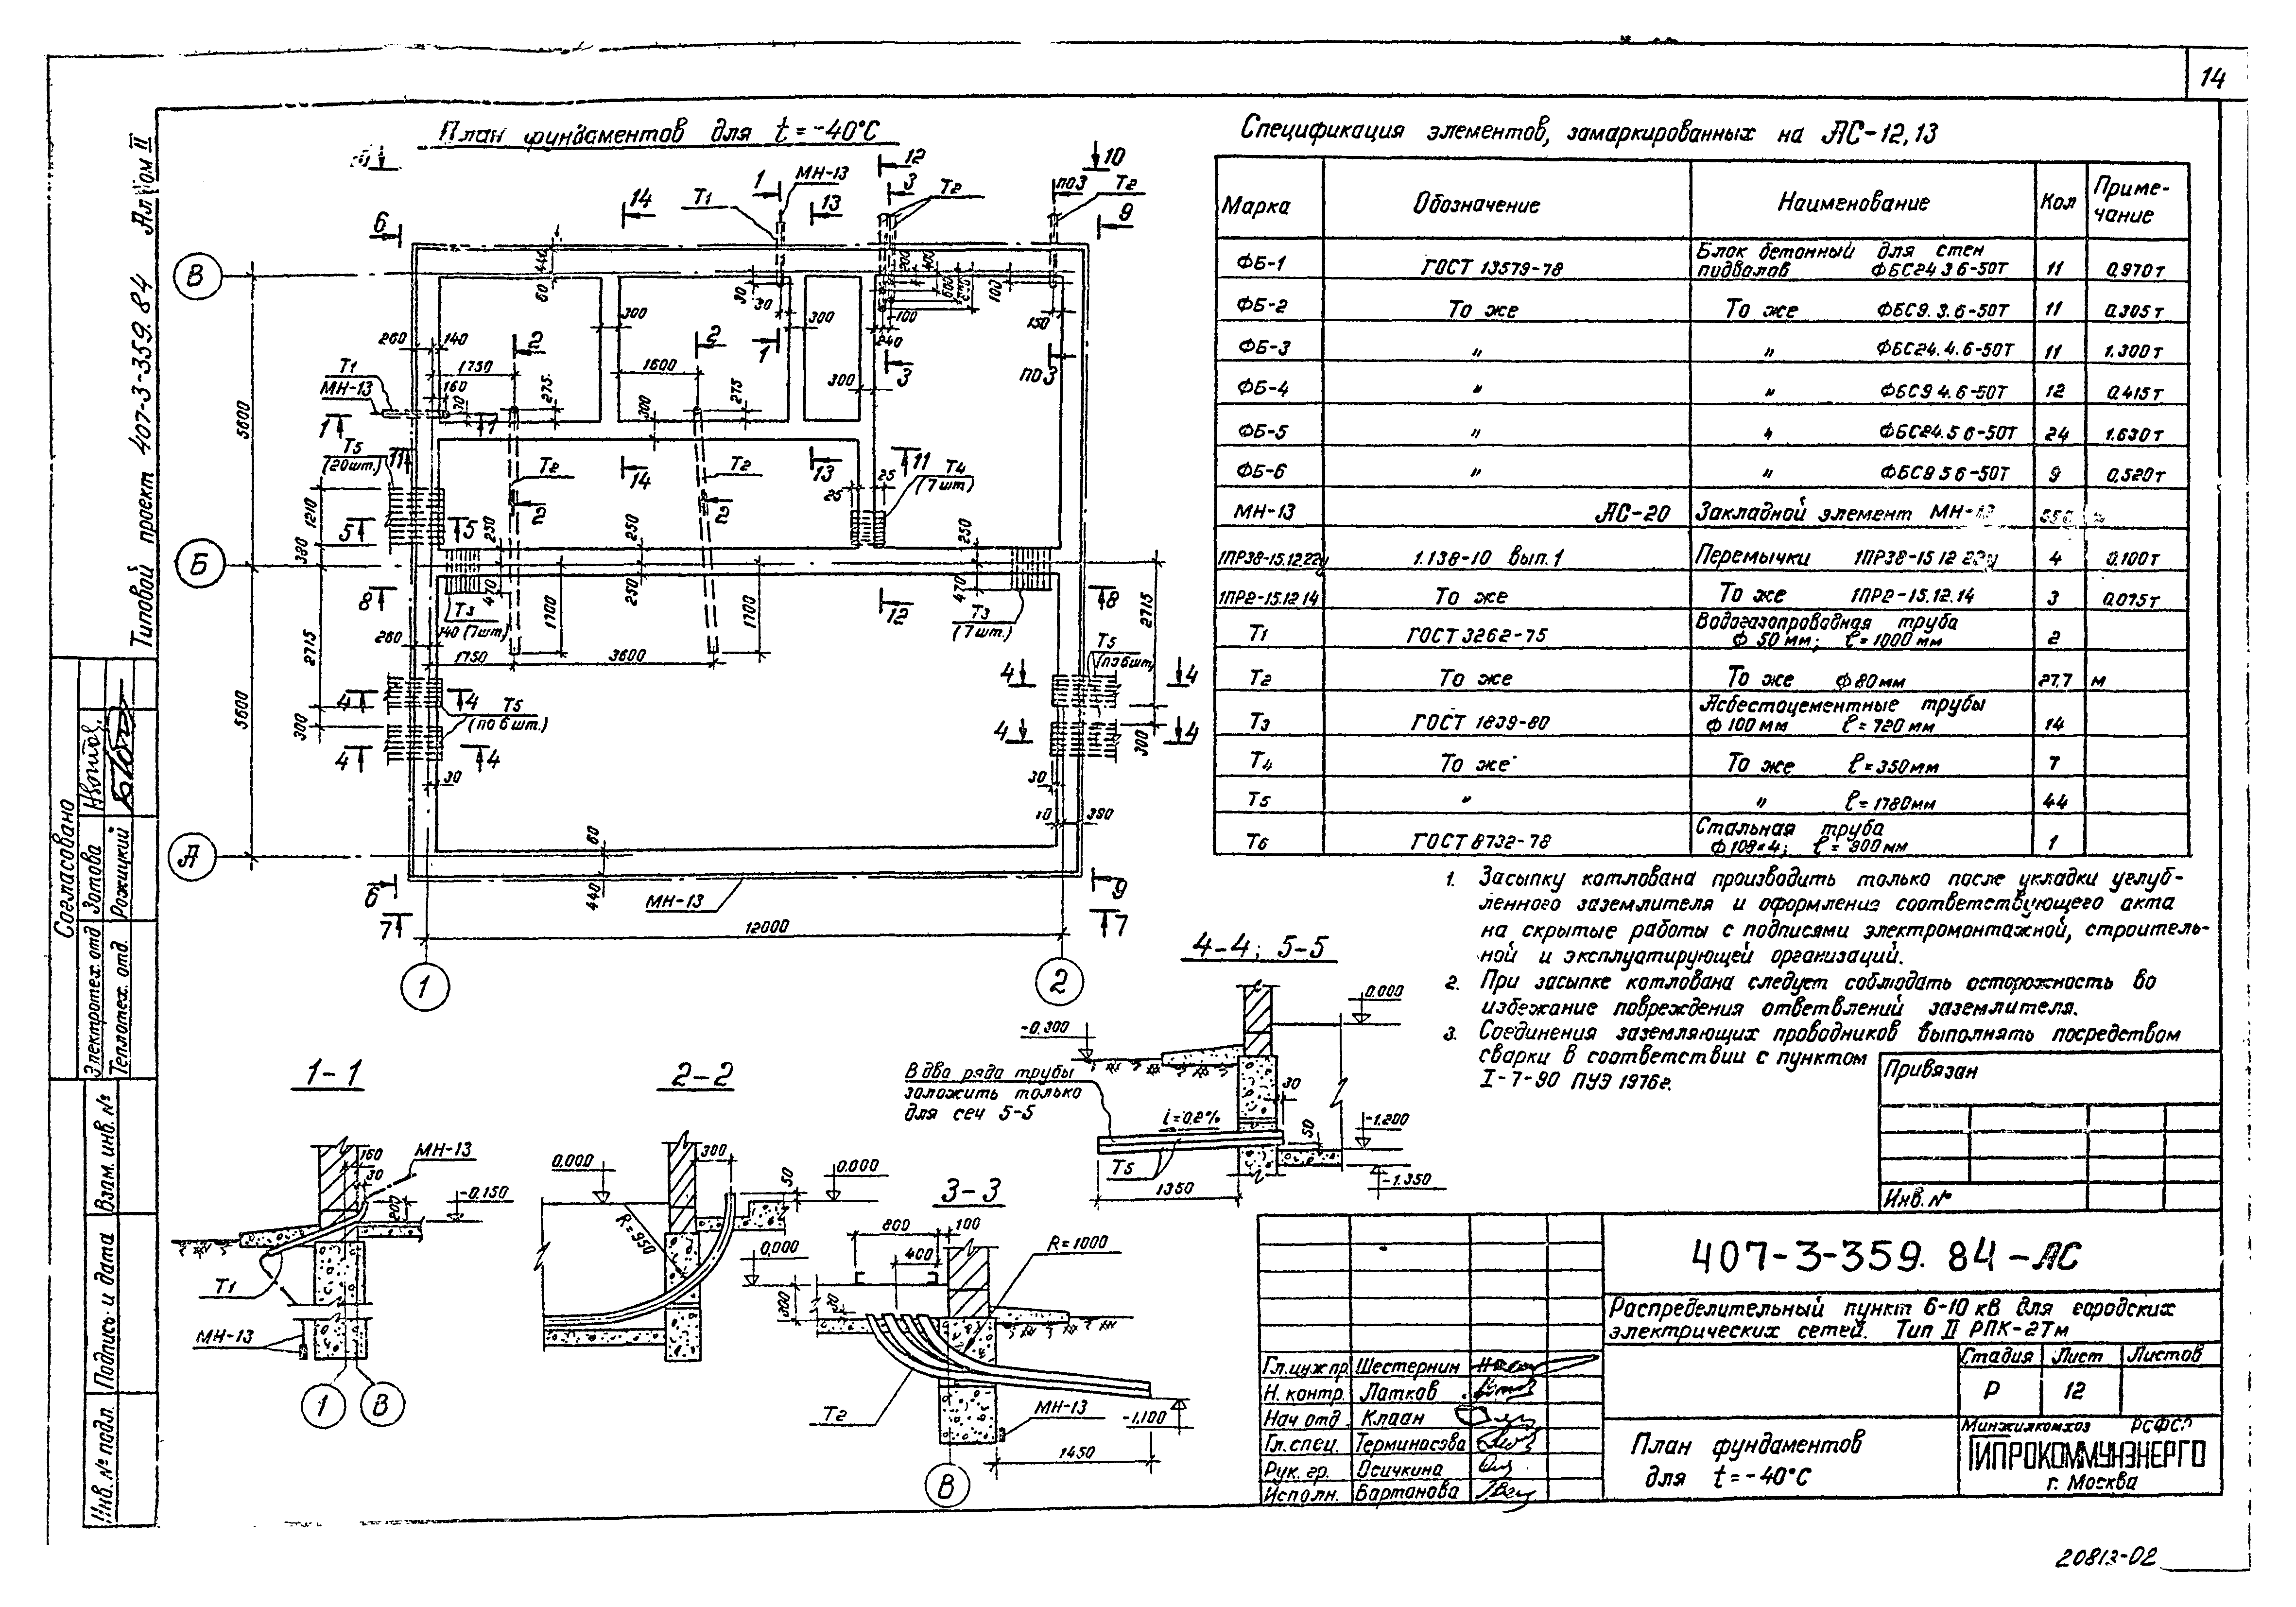 14
Типовой проект 407-3-359.84 Альбом II
План фундаментов для t=-40°C
Спецификация элементов, замаркированных на АС-12,13
Марка Обозначение Наименование Кол Приме-
чание
ФБ-1 ГОСТ 13579-78 Блок бетонный для стен
подвалов ФБС24 3 6-50Т 11 0,970т
ФБ-2 То же То же ФБС9.3.6-50Т 11 0.305т
ФБ-3 " " ФБС24.4.6-50Т 11 1.300т
ФБ-4 " " ФБС9 4.6-50Т 12 0.415т
ФБ-5 " " ФБС24.5 6-50Т 24 1.630т
ФБ-6 " " ФБС9 5 6-50Т 9 0,520т
МН-13 АС-20 Закладной элемент МН-13
1ПР38-15.12.22у 1.138-10 вып.1 Перемычки 1ПР38-15 12 22у 4 0.100т
1ПР2-15.12 14 То же То же 1ПР2-15.12.14 3 0.075т
Т1 ГОСТ 3262-75 Водогазопроводная труба
ф 50 мм; ℓ=1000 мм 2
Т2 То же То же ф 80мм 27.7 м
Т3 ГОСТ 1839-80 Асбестоцементные трубы
ф 100 мм ℓ=720 мм 14
Т4 То же То же ℓ=350мм 7
Т5 " " ℓ=1780мм 44
Т6 ГОСТ 8732-78 Стальная труба
ф 108×4; ℓ=900мм 1
1. Засыпку котлована производить только после укладки углуб-
ленного заземлителя и оформления соответствующего акта
на скрытые работы с подписями электромонтажной, строитель-
ной и эксплуатирующей организаций.
2. При засыпке котлована следует соблюдать осторожность во
избежание повреждения ответвлений заземлителя.
3. Соединения заземляющих проводников выполнять посредством
сварки в соответствии с пунктом
I-7-90 ПУЭ 1976г.
6 14 Т1 1 МН-13 13 12 3 Т2 10 по3 Т2 9
В
440 60 90 30 200 400 600 100 100 150 240
300 300 300
260 140 1750 160 275 1600 275 300
2 2 1 3 по3
Т1
МН-13
5600
1 1 11 11
Т5
(20шт.)
Т2 Т2 14 13
Т4
(7 шт)
25 25
1210 380 5 5 250 250 250
Б
8 8 12
470 250 470
Т3
140 (7шт.)
Т3
(7шт.)
1700 1700
260 1750 3600
2715 2715
Т5
(по 6шт)
4 4 4 4
Т5
(по 6 шт.)
300 300 5600
4 4 4 4
30 30 10 380
А
60 440
6 9
МН-13
7 7
12000
1 2
4-4; 5-5
0.000
-0,300
В два ряда трубы
заложить только
для сеч 5-5
i=0,2%
30 50
-1.200
-1.350
Т5
1350
1-1
МН-13
160 30 200
-0.150
Т1
МН-13
1 В
2-2
0.000
300 50
0.000
R=950
3-3
800 100 400
R=1000
0,000
300 30
Т2
МН-13
-1,100
1450
В
Привязан
Инв. №
Согласовано
Электротех. отд Зотова
Теплотех. отд. Рожицкий
Взам. инв. №
Подпись и дата
Инв. № подл.
407-3-359. 84-АС
Распределительный пункт 6-10 кВ для городских
электрических сетей. Тип II РПК-2Тм
Гл.инж пр. Шестернин
Н. контр. Латков
Нач отд. Клаан
Гл.спец. Терминасова
Рук. гр. Осичкина
Исполн. Вартанова
Стадия Лист Листов
Р 12
План фундаментов
для t=-40°C
Минжилкомхоз РСФСР
ГИПРОКОММУНЭНЕРГО
г. Москва
20813-02